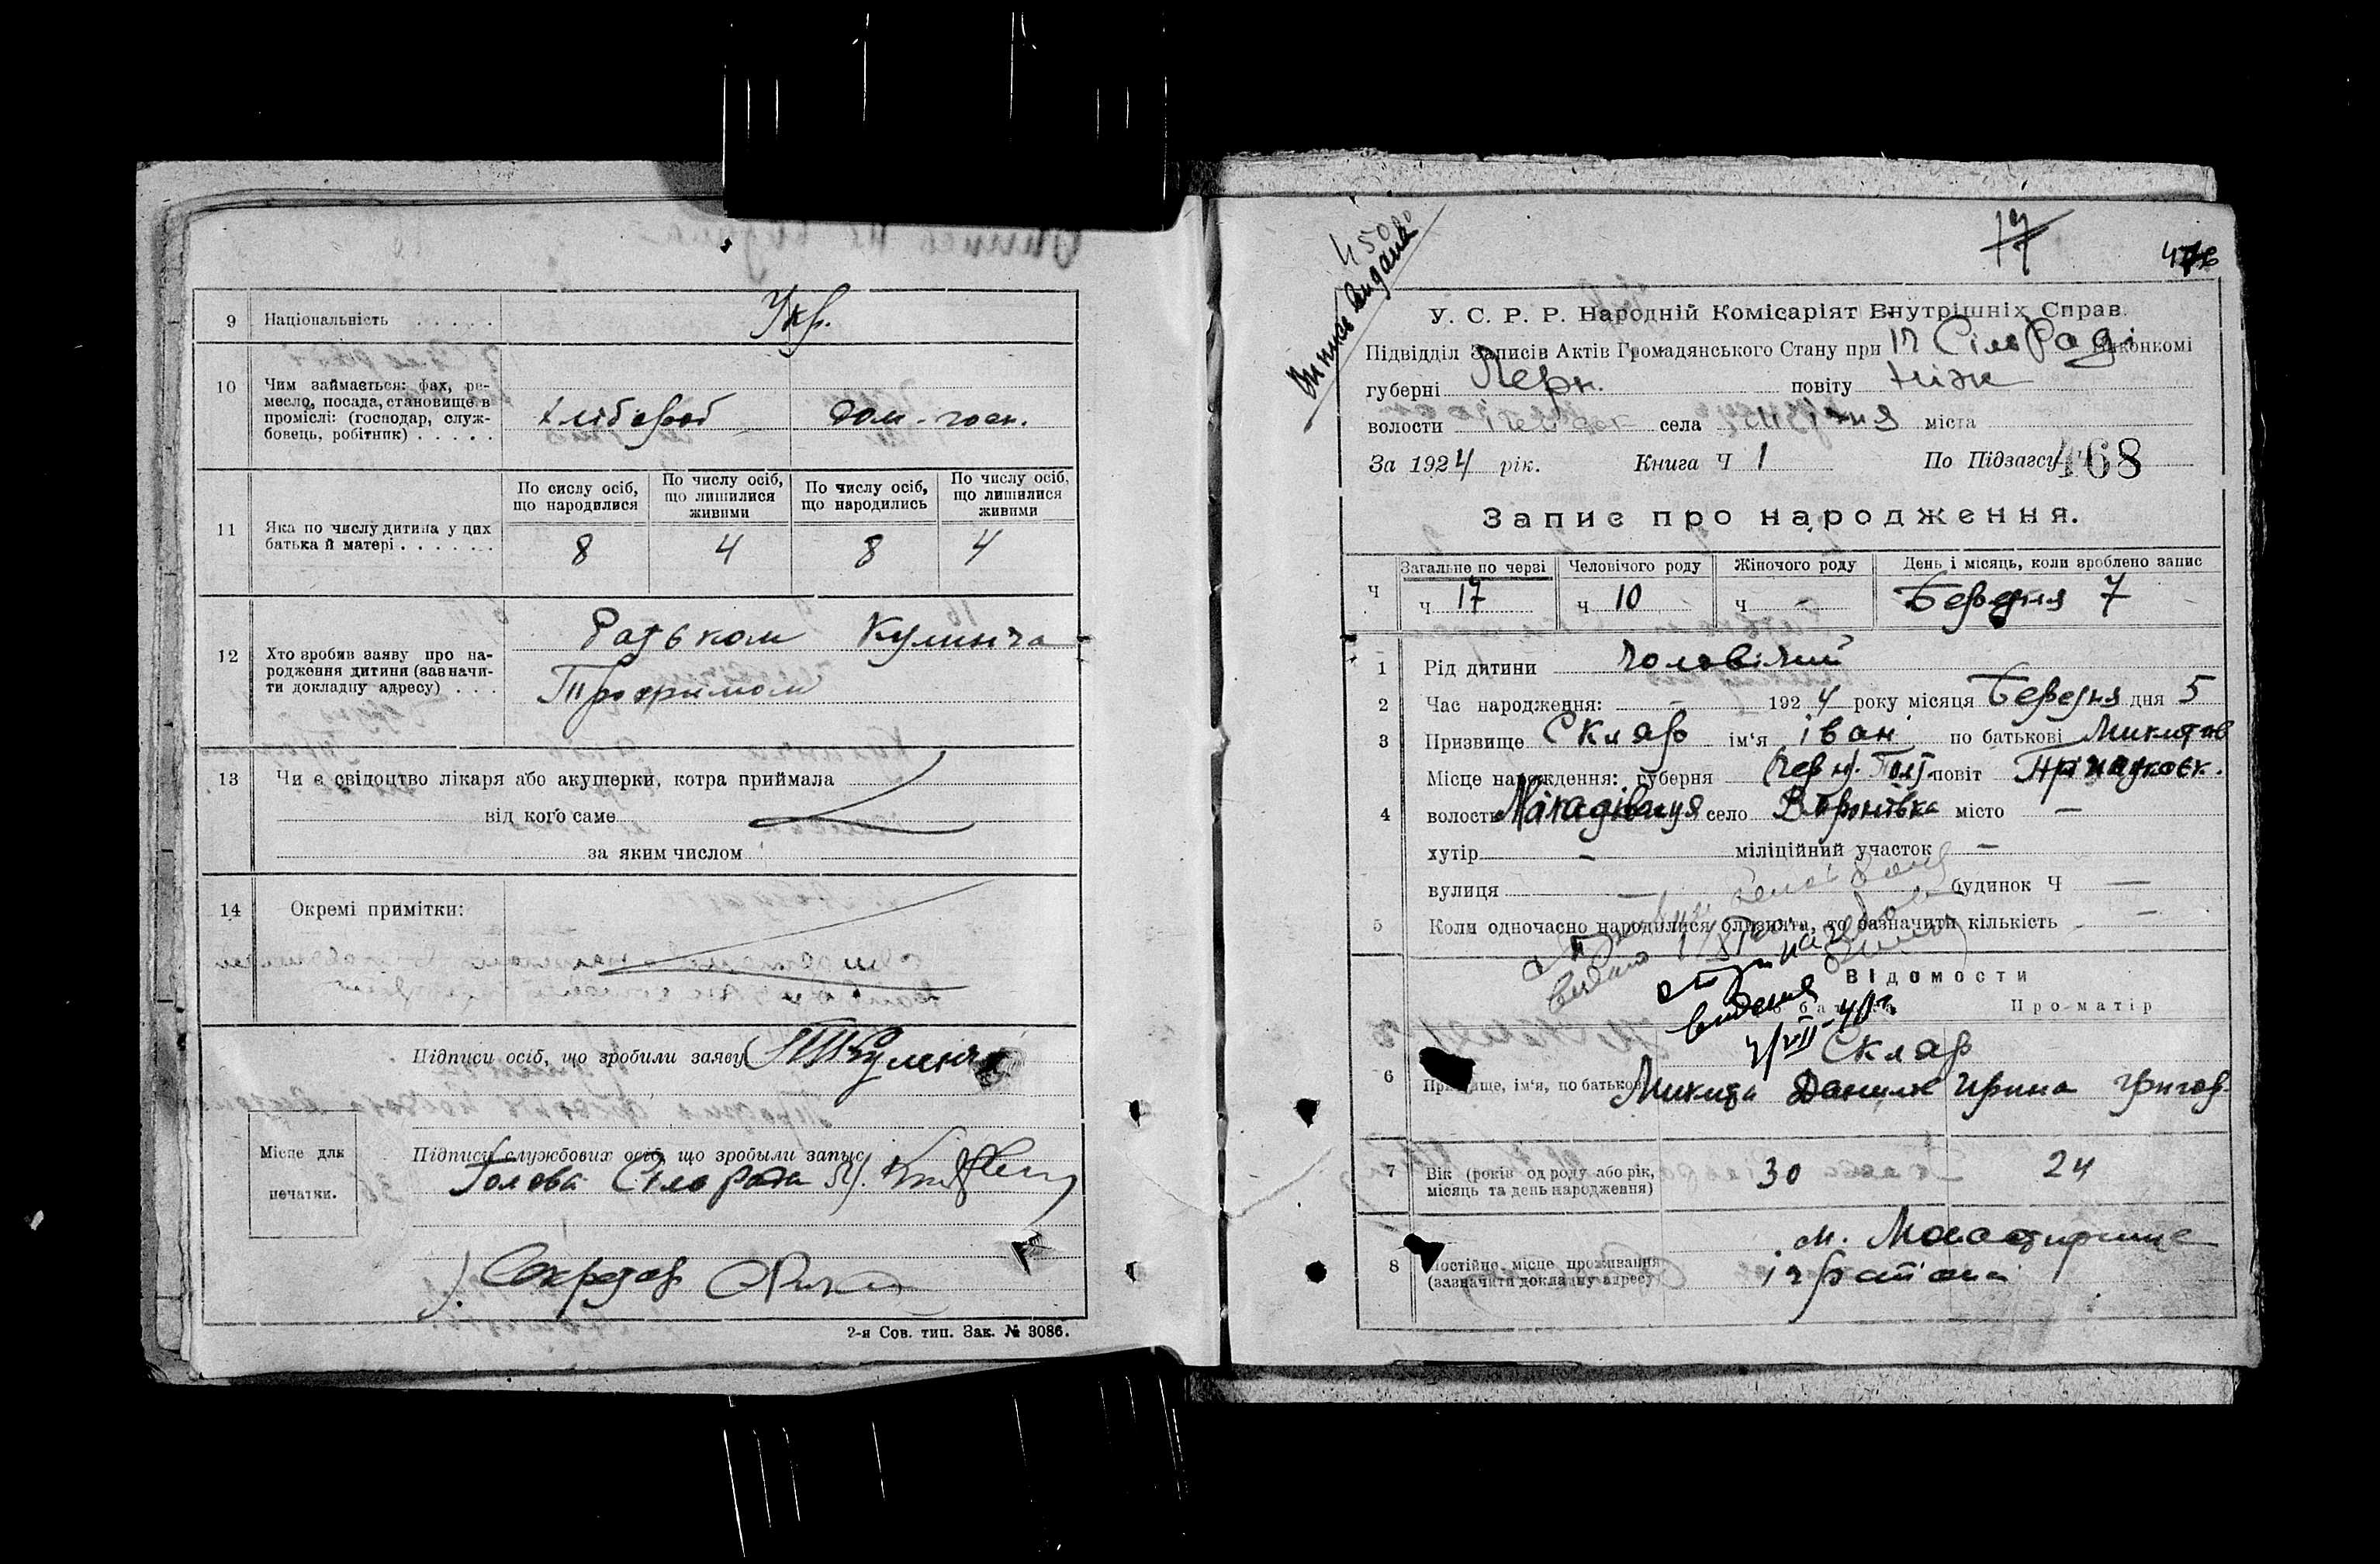 9 Національність . . . . . Укр.
10 Чим займається: фах, ре-
месло, посада, становище в
проміслі: (господар, служ-
бовець, робітник) . . . . .
хлібороб дом. госп.
11 Яка по числу дитина у цих
батька й матері . . . . . .
По сислу осіб,
що народилися
По числу осіб,
що лишилися
живими
По числу осіб,
що народились
По числу осіб,
що лишилися
живими
8 4 8 4
12 Хто зробив заяву про на-
родження дитини (зазначи-
ти докладну адресу) . . .
Батьком Кулинча
Трофимом
13 Чи є свідоцтво лікаря або акушерки, котра приймала
від кого саме
за яким числом
14 Окремі примітки:
Підписи осіб, що зробили заяву
Місце для
печатки.
Підписи службових осіб, що зробили запис
Голова Сільради
Секретар
2-я Сов. тип. Зак. № 3086.
17
Випись видана
У. С. Р. Р. Народній Комісаріят Внутрішніх Справ.
Підвідділ Записів Актів Громадянського Стану при Сільраді виконкомі
губерні Черн. повіту Ніж
волости села міста
За 1924 рік. Книга Ч 1 По Підзагсу Ч 468
Запис про народження.
Ч Загальне по черзі Человічого роду Жіночого роду День і місяць, коли зроблено запис
Ч 17 Ч 10 Ч - Березня 7
1 Рід дитини чоловічий
2 Час народження: - 1924 року місяця Березня дня 5
3 Призвище Скляр ім'я іван по батькові Микитов
4 Місце народження: губерня повіт
волость село Воронівка місто —
хутір - міліційний участок -
вулиця — будинок Ч —
5 Коли одночасно народилися близнята, то зазначити кількість —
Відомости
Про батька Про матір
6 Призвище, ім'я, по батькові
Скляр
Микита Данилів Ирина Григор.
7 Вік (років од роду або рік,
місяць та день народження)
30 24
8 Постійне місце проживання
(зазначити докладну адресу)
м. Монастирище